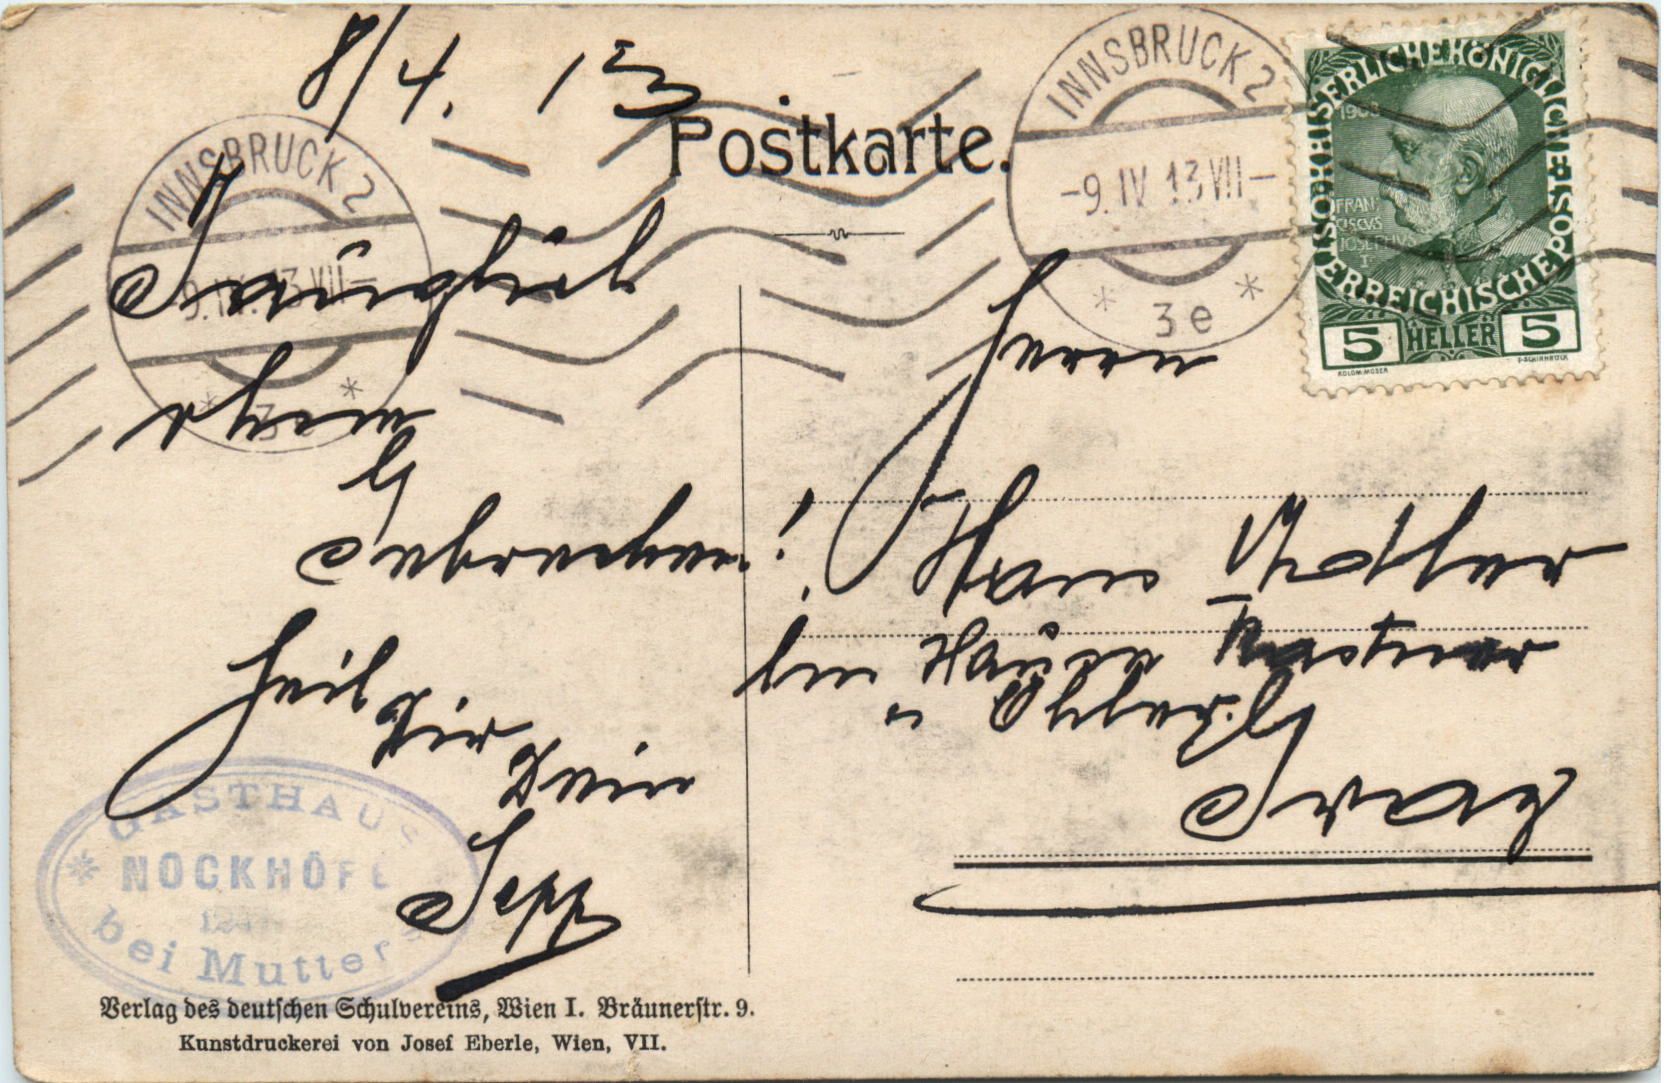 8/4. 13
Postkarte.
INNSBRUCK 2
-9. IV. 13 VII-
* 3e *
INNSBRUCK 2
-9. IV 13 VII-
* 3e *
KAISERLICHE KÖNIGLICHE ÖSTERREICHISCHE POST
1908
FRAN
CISCVS
IOSEPHVS
I
5 HELLER 5
KOLOM·MOSER
F·SCHIRNBÖCK
!
Heil
Dir
Dein
Sepp
Herrn
Hans
im Hause Kastner
u Öhler
Graz
GASTHAUS
NOCKHÖFE
bei Mutters
Verlag des deutschen Schulvereins, Wien I. Bräunerstr. 9.
Kunstdruckerei von Josef Eberle, Wien, VII.